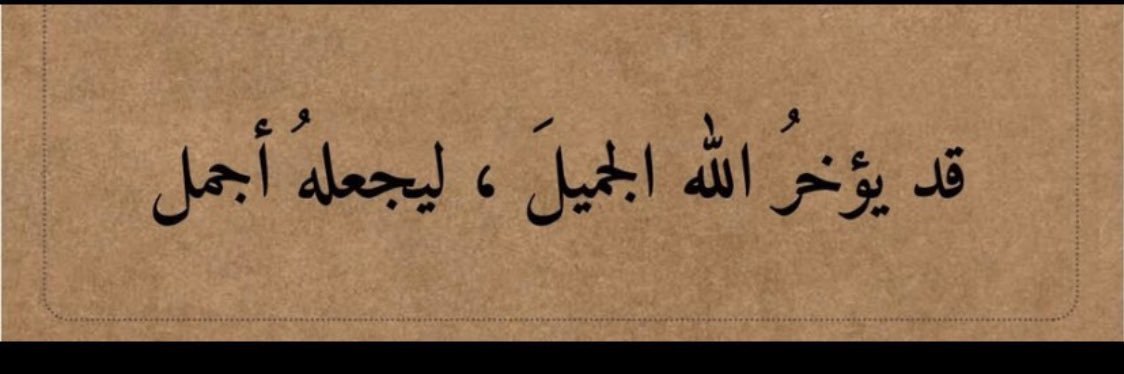 قد يؤخرُ الله الجميلَ ، ليجعلهُ أجمل